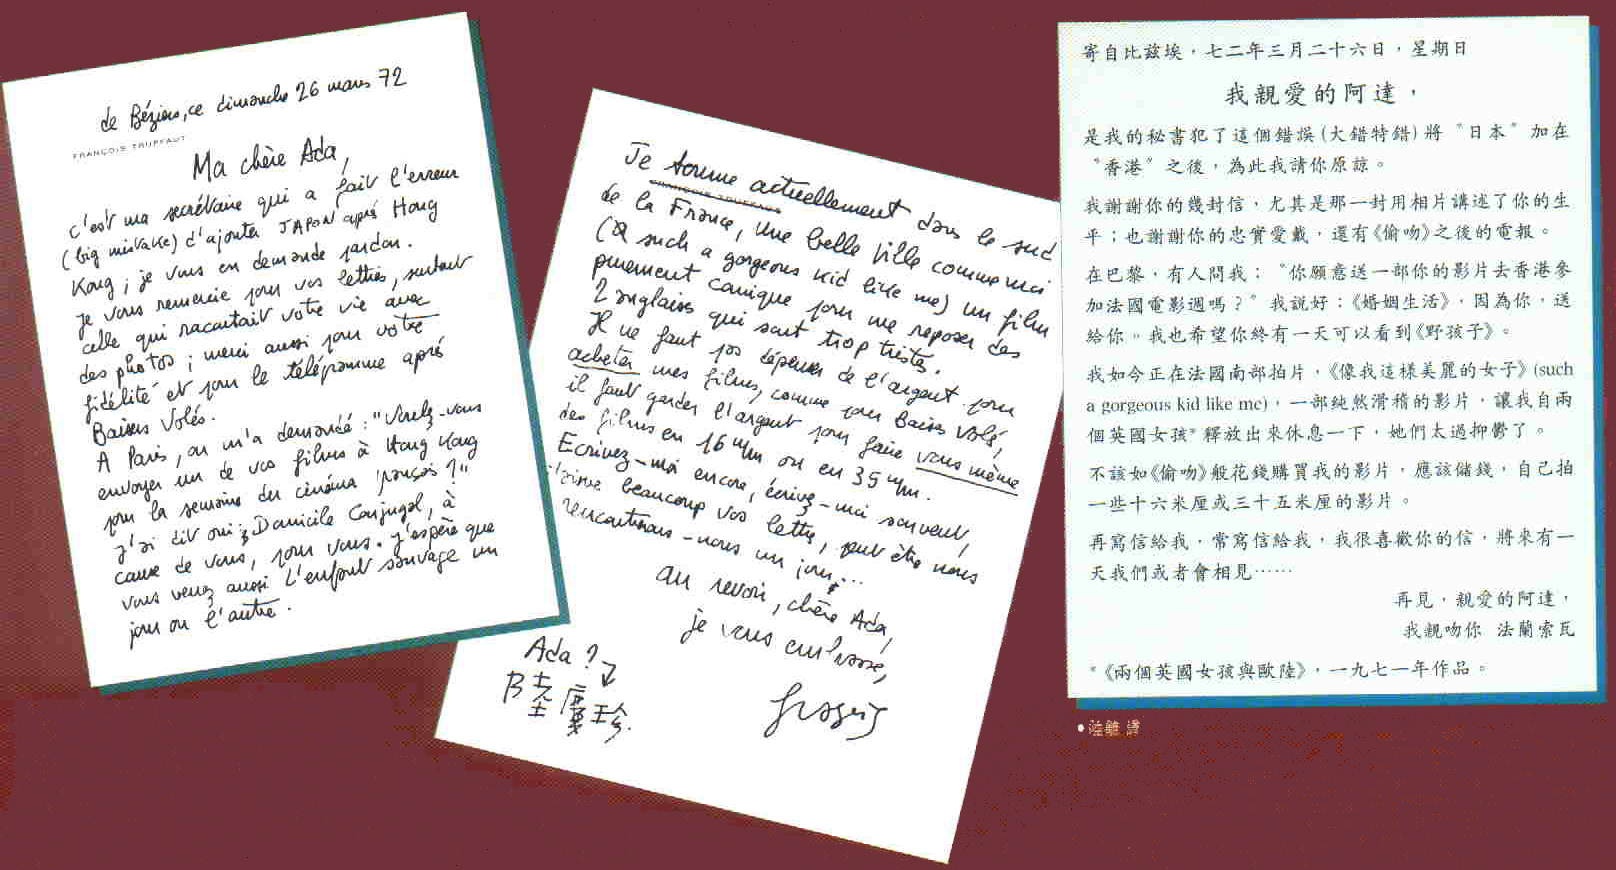 de Béziers, ce dimanche 26 mars 72
FRANÇOIS TRUFFAUT
Ma chère Ada,
c'est ma secrétaire qui a fait l'erreur
(big mistake) d'ajouter JAPON après Hong
Kong ; je vous en demande pardon.
Je vous remercie pour vos lettres, surtout
celle qui racontait votre vie avec
des photos ; merci aussi pour votre
fidélité et pour le télégramme après
Baisers Volés.
A Paris, on m'a demandé : "Voulez-vous
envoyer un de vos films à Hong Kong
pour la semaine du cinéma français ?"
J'ai dit oui : Domicile Conjugal, à
cause de vous, pour vous. J'espère que
vous verrez aussi L'enfant sauvage un
jour ou l'autre.
Je tourne actuellement dans le sud
FRANÇOIS TRUFFAUT
de la France, Une belle fille comme moi
(a such a gorgeous kid like me) un film
purement comique pour me reposer des
2 anglaises qui sont trop tristes.
Il ne faut pas dépenser de l'argent pour
acheter mes films, comme pour Baisers Volés,
il faut garder l'argent pour faire vous même
des films en 16 mm ou en 35 mm.
Ecrivez-moi encore, écrivez-moi souvent,
j'aime beaucoup vos lettres, peut être nous
rencontrerons-nous un jour...
au revoir, chère Ada,
je vous embrasse,
françois
Ada ?
陸慶珍
寄自比茲埃，七二年三月二十六日，星期日
我親愛的阿達，
是我的秘書犯了這個錯誤(大錯特錯)將〝日本〞加在
〝香港〞之後，為此我請你原諒。
我謝謝你的幾封信，尤其是那一封用相片講述了你的生
平；也謝謝你的忠實愛戴，還有《偷吻》之後的電報。
在巴黎，有人問我：〝你願意送一部你的影片去香港參
加法國電影週嗎？〞我說好：《婚姻生活》，因為你，送
給你。我也希望你終有一天可以看到《野孩子》。
我如今正在法國南部拍片，《像我這樣美麗的女子》(such
a gorgeous kid like me)，一部純然滑稽的影片，讓我自兩
個英國女孩*釋放出來休息一下，她們太過抑鬱了。
不該如《偷吻》般花錢購買我的影片，應該儲錢，自己拍
一些十六米厘或三十五米厘的影片。
再寫信給我，常寫信給我，我很喜歡你的信，將來有一
天我們或者會相見……
再見，親愛的阿達，
我親吻你 法蘭索瓦
*《兩個英國女孩與歐陸》，一九七一年作品。
•陸離 譯